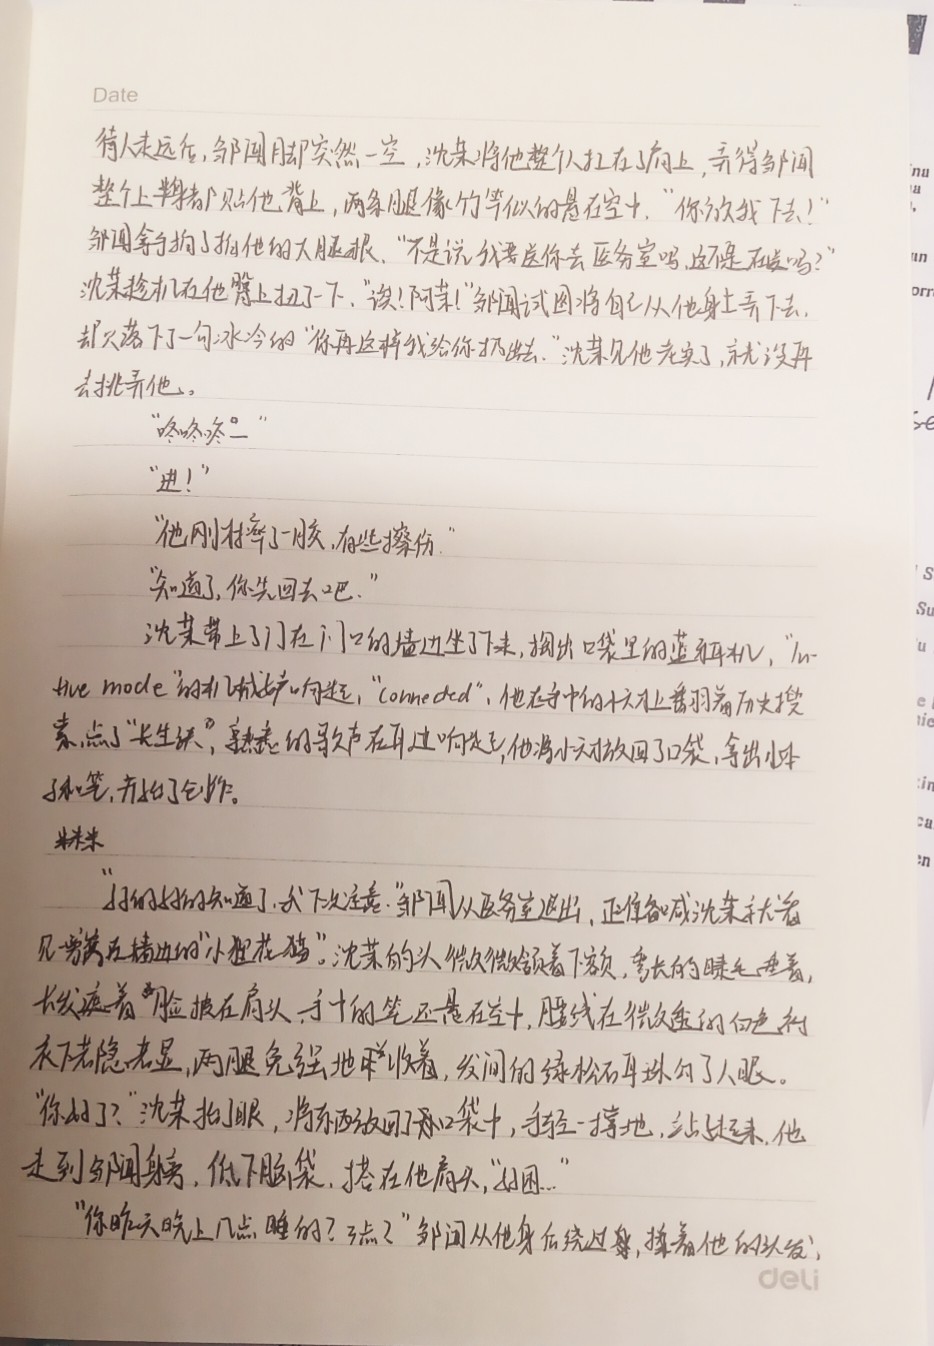 Date
待人走远后，邹闻脚却突然一空，沈某将他整个人扛在了肩上，弄得邹闻
整个上半身都贴他背上，两条腿像竹竿似的悬在空中，“你放我下去！”
邹闻拿手掐了掐他的大腿根，“不是说我要送你去医务室吗，这不是在送吗？”
沈某趁机在他臀上扭了一下，“诶！阿某！”邹闻试图将自己从他身上弄下去，
却只落下了一句冰冷的“你再这样我给你扔出去，”沈某见他老实了，就没再
去挑弄他。
“咚咚咚——”
“进！”
“他刚才摔了一跤，有些擦伤”
“知道了，你先回去吧.”
沈某带上了门在门口的墙边坐了下来，掏出口袋里的蓝牙耳机，
mode”的机械声响起，“connected”，他在手中的小方块上翻着历史搜
索，点了“长生诀”，熟悉的歌声在耳边响起，他将小方块放回了口袋，拿出小本
子和笔，开始了创作。
***
“好的好的知道了，我下次注意.”邹闻从医务室退出，正准备喊沈某就看
见旁离在墙边的“小狸花猫”。沈某的头微微微颔着下颌，弯长的睫毛垂着，
长发遮着脸披在肩头，手中的笔还悬在空中，腰线在微微透的白色衬
衣下若隐若显，两腿免强地收着，发间的绿松石耳珠勾了人眼。
“你好了？”沈某抬了眼，将东西放回了口袋中，手轻一撑地，站起来，他
走到邹闻身旁，低下脑袋，搭在他肩头，“好困...”
“你昨天晚上几点睡的？3点？”邹闻从他身后绕过身，揉着他的头发，
deli